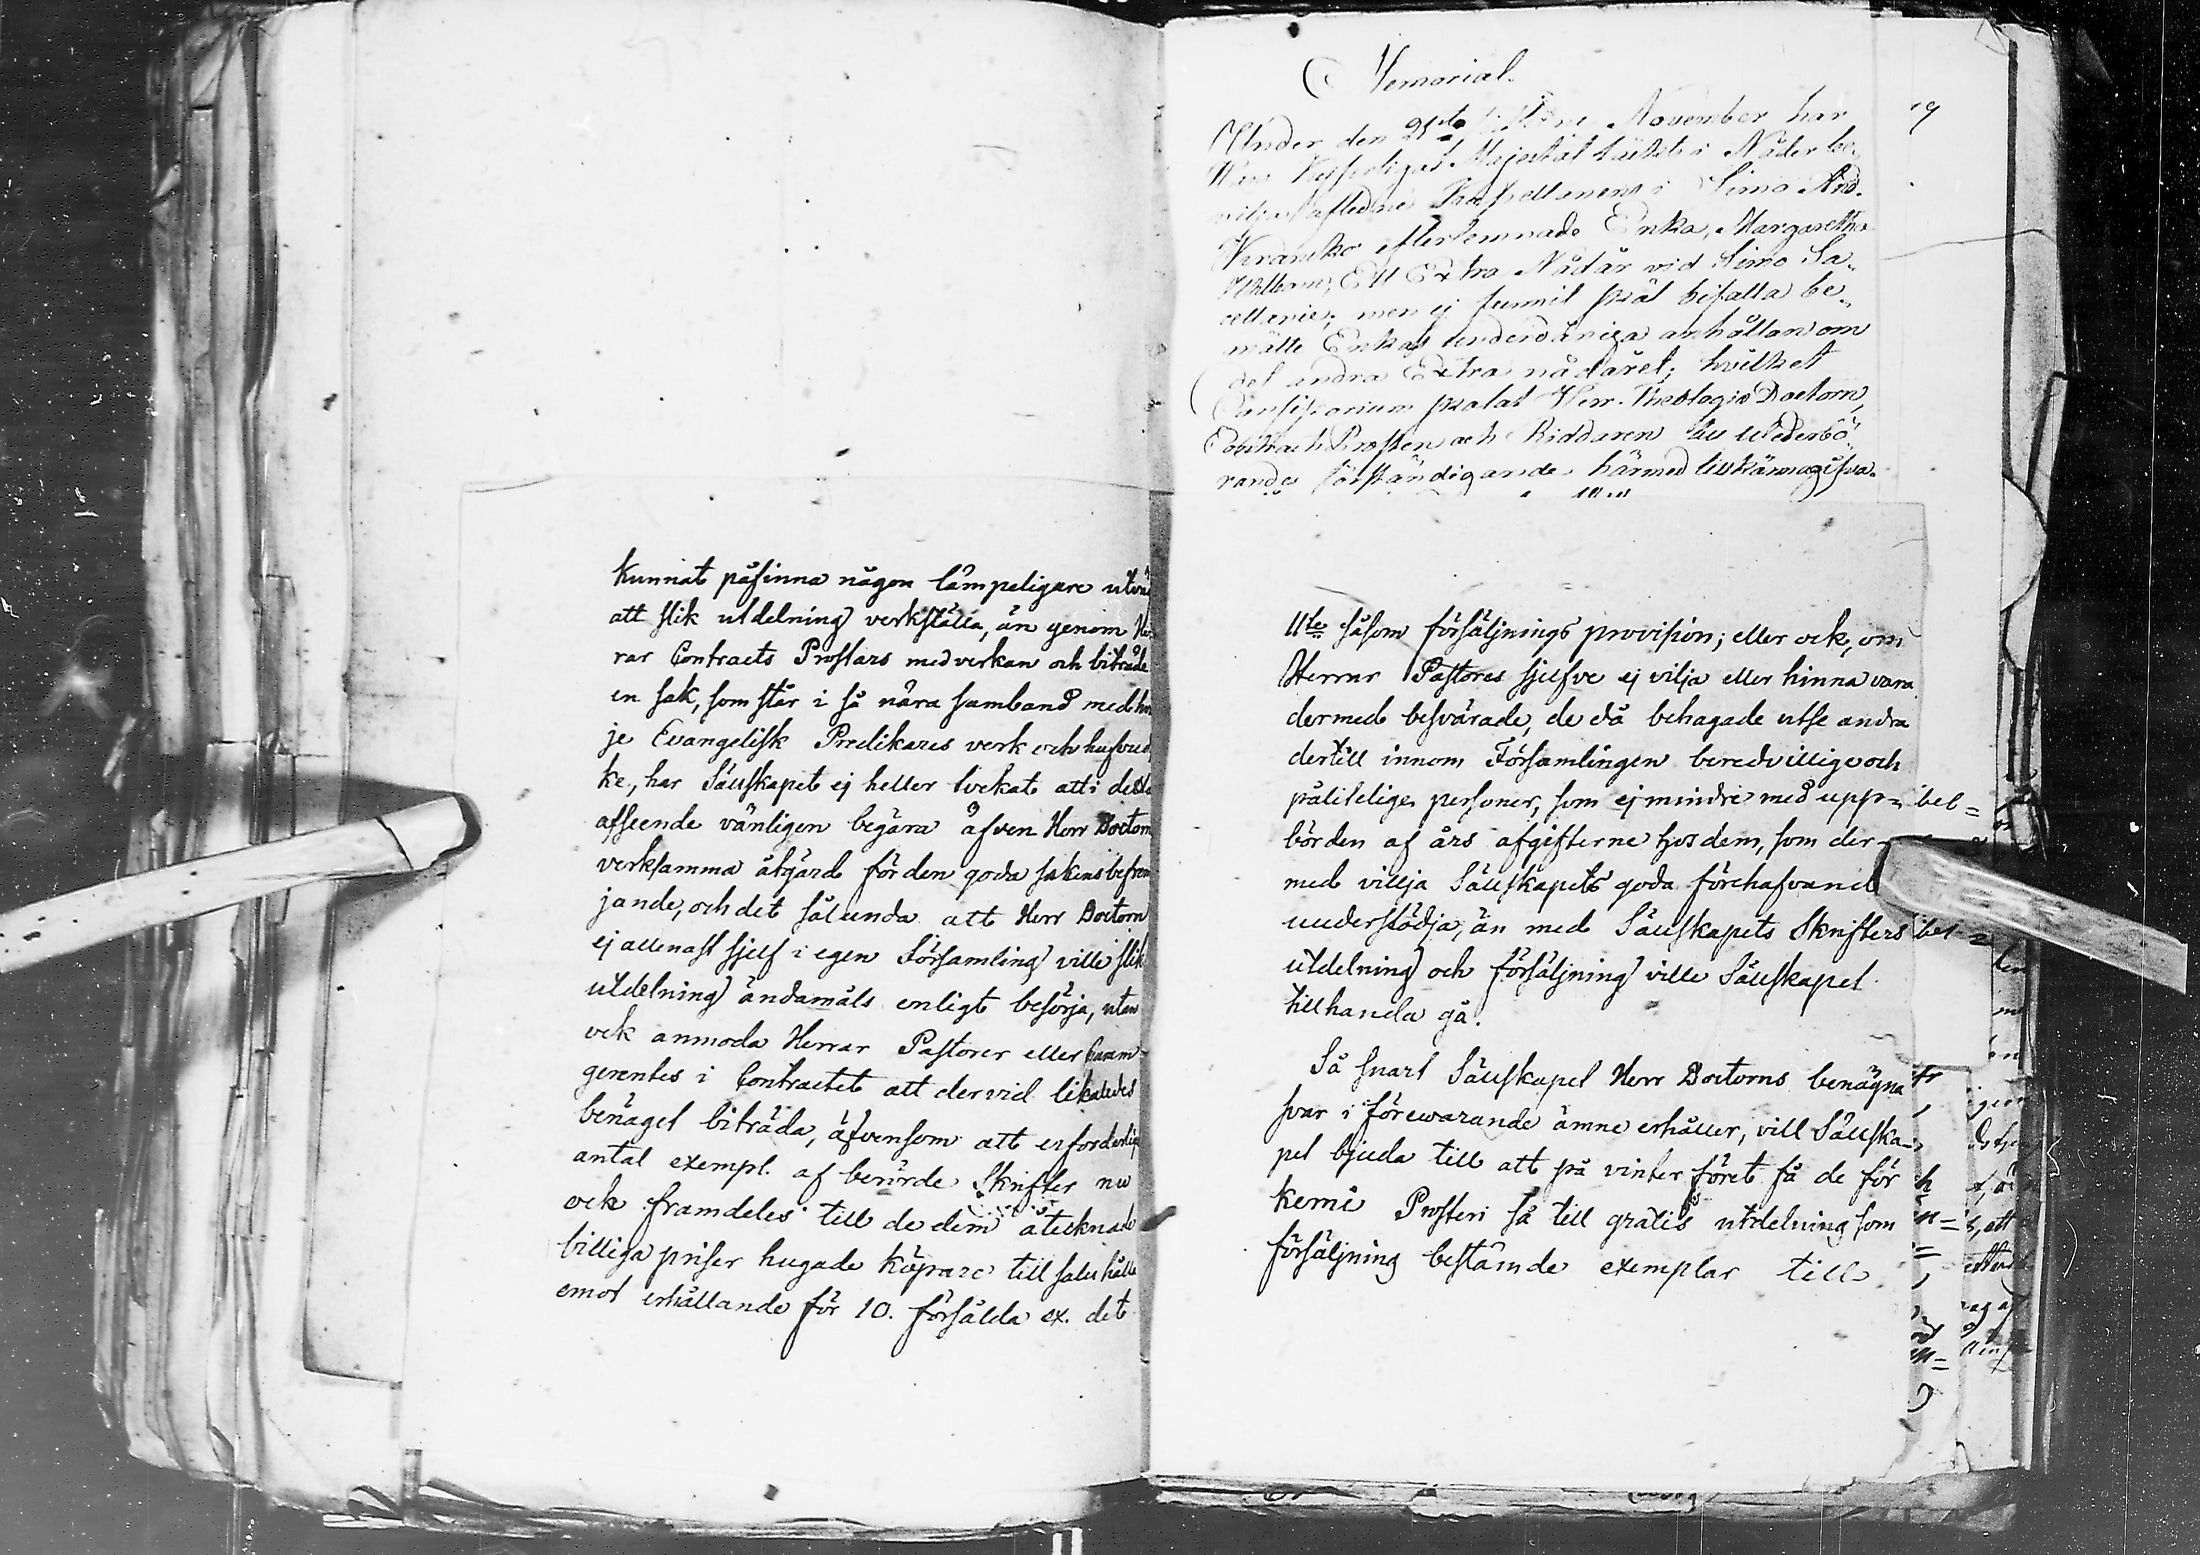 kunnat påfinna någon lämpeligare utväg
att slik utdelning verkställa, än genom Her
rar Contracts Prostars medverkan och biträde
en sak, som står i så nära samband med hvar
je Evangelisk Predikares verk och
ke, har Sällskapet ej heller tvekat att i detta
afseende vänligen begära äfven Herr Doctorns
verksamma åtgärd för den goda sakens befräm
jande, och det sålunda att Herr Doctorn
ej allenast sjelf i egen Församling ville slik
utdelning ändamåls enligt besörja, utan
ock anmoda Herrar Pastorer eller
gerentes i Contractet att dervid likaledes
benäget biträda, äfvensom att erforderligt
antal exempl. af berörde Skrifter nu
ock framdeles till de dem åtecknade
billiga priser hugade köpare till salu hålla
emot erhållande för 10. försålda ex. det
Memorial.
19
Under den 21sta sistledne November har
Hans Kejserliga Majestät täckts i Nåder be-
vilja aflidne Kapellanens i Simo And.
Veranko efterlemnade Enka, Margaretha
Wallman, Ett Extra Nådår vid Simo Sa-
cellanie; men ej funnit skäl bifalla be-
mälte Enkas underdåniga anhållan om
det andra Extra nådåret; hvilket
Consistorium skolat Herr Theologiæ Doctorn,
Contracts Prosten och Riddaren till vederbö-
randes förständigande härmed tillkännagifva.
11te såsom försäljnings provision; eller ock, om
Herrar Pastores sjelfve ej vilja eller hinna vara
dermed besvärade, de då behagade utse andra
dertill innom Församlingen beredvillige och
pålitelige personer, som ej mindre med upp-
börden af års afgifterne hos dem, som der-
med vilja Sällskapets goda förehafvand
understödja, än med Sällskapets Skrifters
utdelning och försäljning ville Sällskapet
tillhanda gå.
Så snart Sällskapet Herr Doctorns benägna
svar i förevarande ämne erhåller, vill Sällska-
pet bjuda till att på vinterföret få de för
Kemi Prosteri så till gratis utdelning som
försäljning bestämde exemplar till